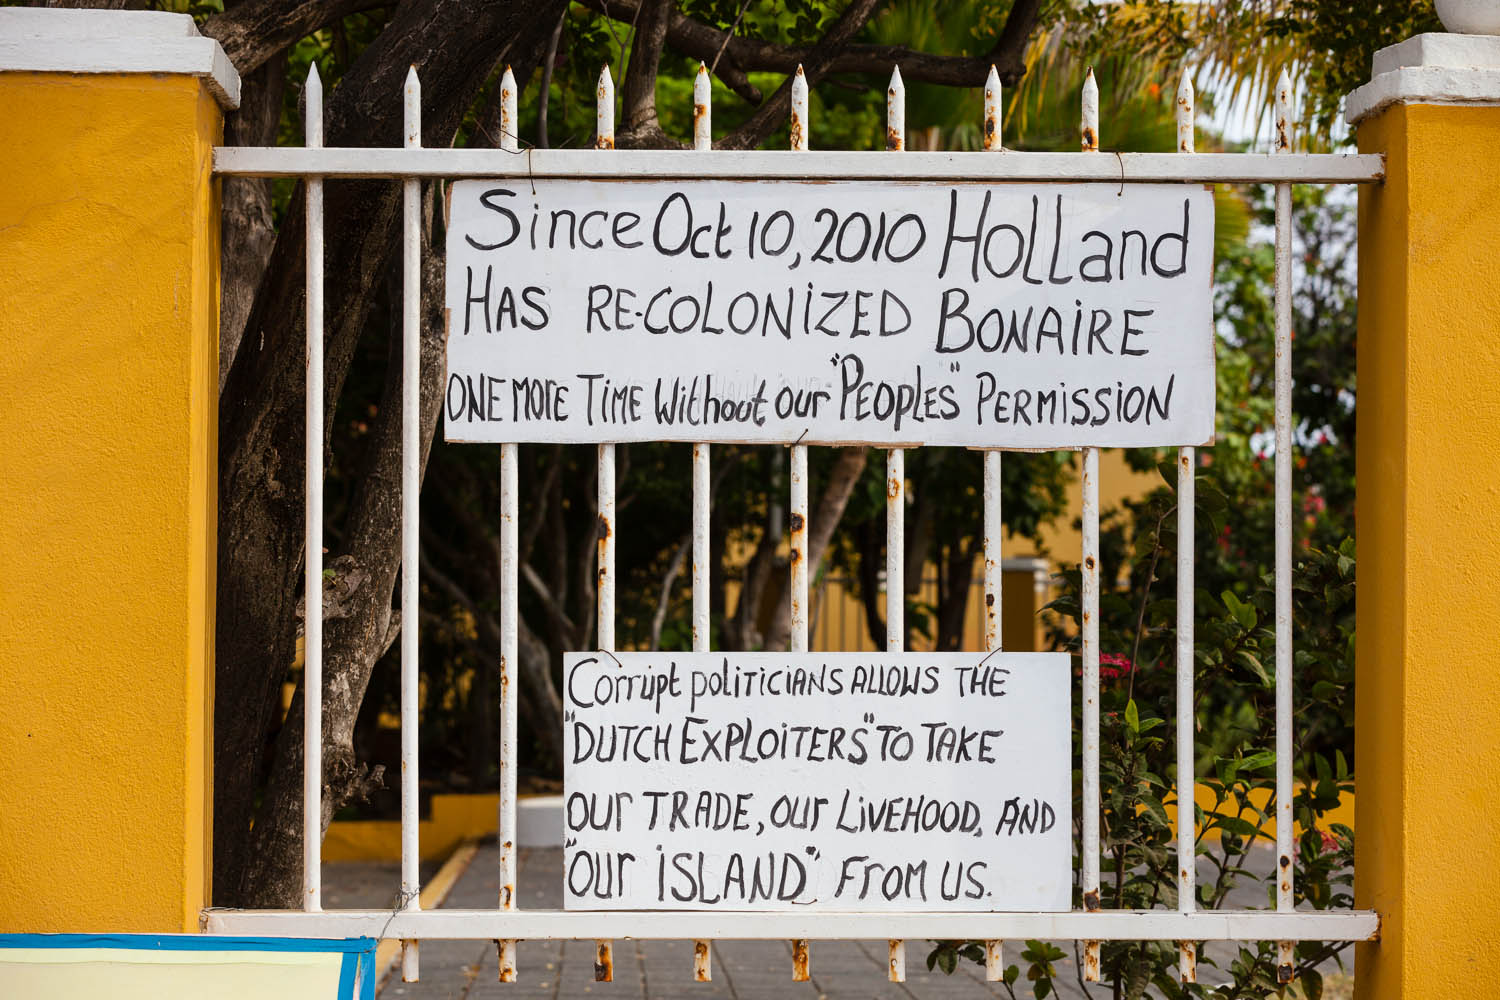 Since Oct 10, 2010 Holland
HAS RE-COLONIZED BONAIRE
ONE MORE TIME Without our "PEOPLES" PERMISSION
Corrupt POLITICIANS ALLOWS THE
"DUTCH EXPLOITERS" TO TAKE
OUR TRADE, OUR LIVEHOOD, AND
"OUR ISLAND" FROM US.